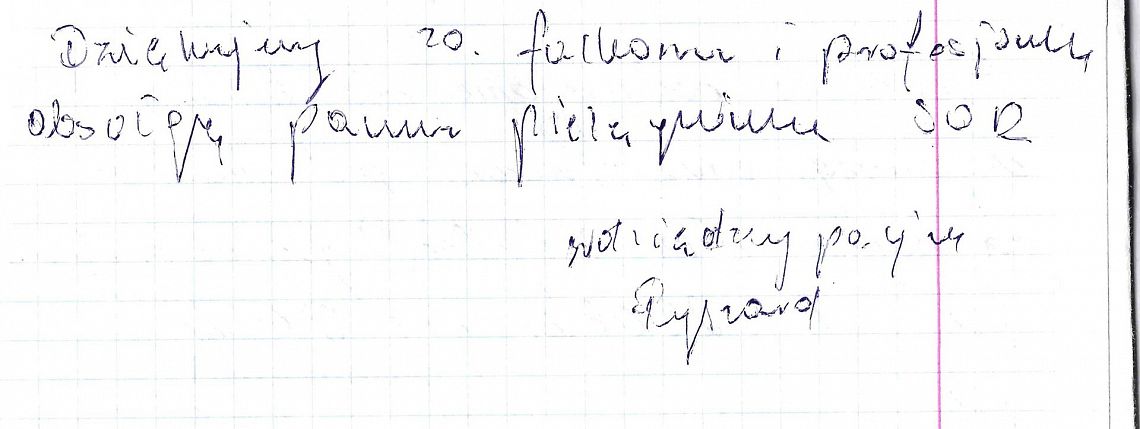 Dziękujemy za. fachową i profesjonalną
obsółgę panu pielęgniarzu SOR
wdzięczny pacjent
Ryszard